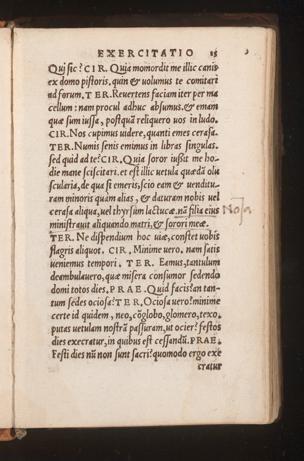 EXERCITATIO 15
Qui sic? CIR. Quia momordit me illic canis
ex domo pistoris, quin & uolumus te comitari
ad forum. TER. Reuertens faciam iter per ma
cellum: nam procul adhuc absumus, & emam
quæ sum iussa, postquã reliquero uos in ludo.
CIR. Nos cupimus uidere, quanti emes cerasa.
TER. Numis senis emimus in libras singulas.
sed quid ad te? CIR. Quia soror iußit me ho-
die mane sciscitari. et est illic uetula quædã olu
scularia, de qua si emeris, scio eam & uenditu-
ram minoris quàm alias, & daturam nobis uel
cerasa aliqua, uel thyrsum lactucæ. nã filia eius
ministrauit aliquando matri, & sorori meæ.
TER. Ne dispendium hoc uiæ, constet uobis
flagris aliquot. CIR. Minime uero. nam satis
ueniemus tempori. TER. Eamus, tantulum
deambulauero, quæ misera consumor sedendo
domi totos dies. PRAE. Quid facis? an tan-
tum sedes ociosa? TER. Ociosa uero? minime
certe id quidem, neo, cõglobo, glomero, texo.
putas uetulam nostrã passuram, ut ocier? festos
dies execratur, in quibus est cessandũ. PRAE.
Festi dies nũ non sunt sacri? quomodo ergo exe
cratur
Nota